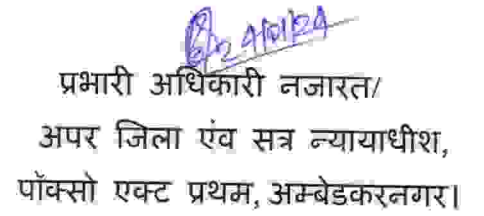 24/01/24
प्रभारी अधिकारी नजारत/
अपर जिला एंव सत्र न्यायाधीश,
पॉक्सो एक्ट प्रथम, अम्बेडकरनगर।